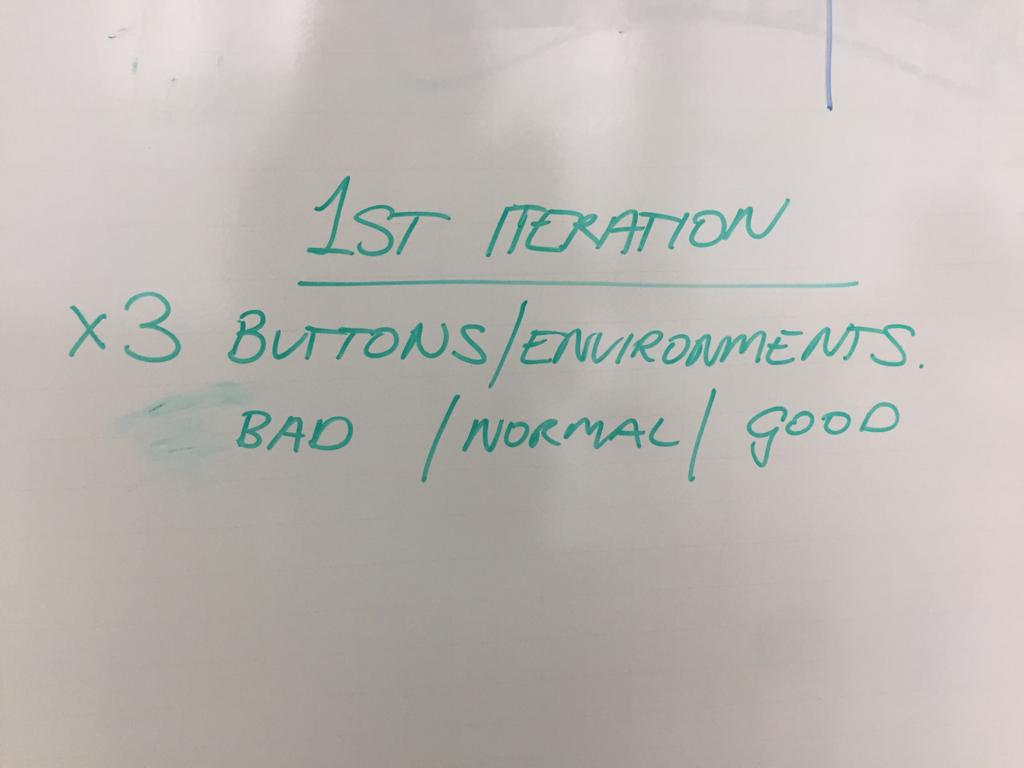 1ST ITERATION
x3 BUTTONS/ENVIRONMENTS.
BAD / NORMAL / GOOD